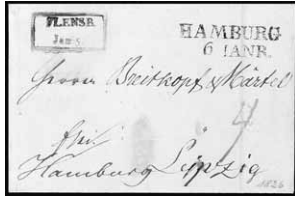 FLENSB.
Jan 5
HAMBURG
6 JANR.
Herrn Breitkopf & Härtel
4
frei
Hamburg Leipzig
1826